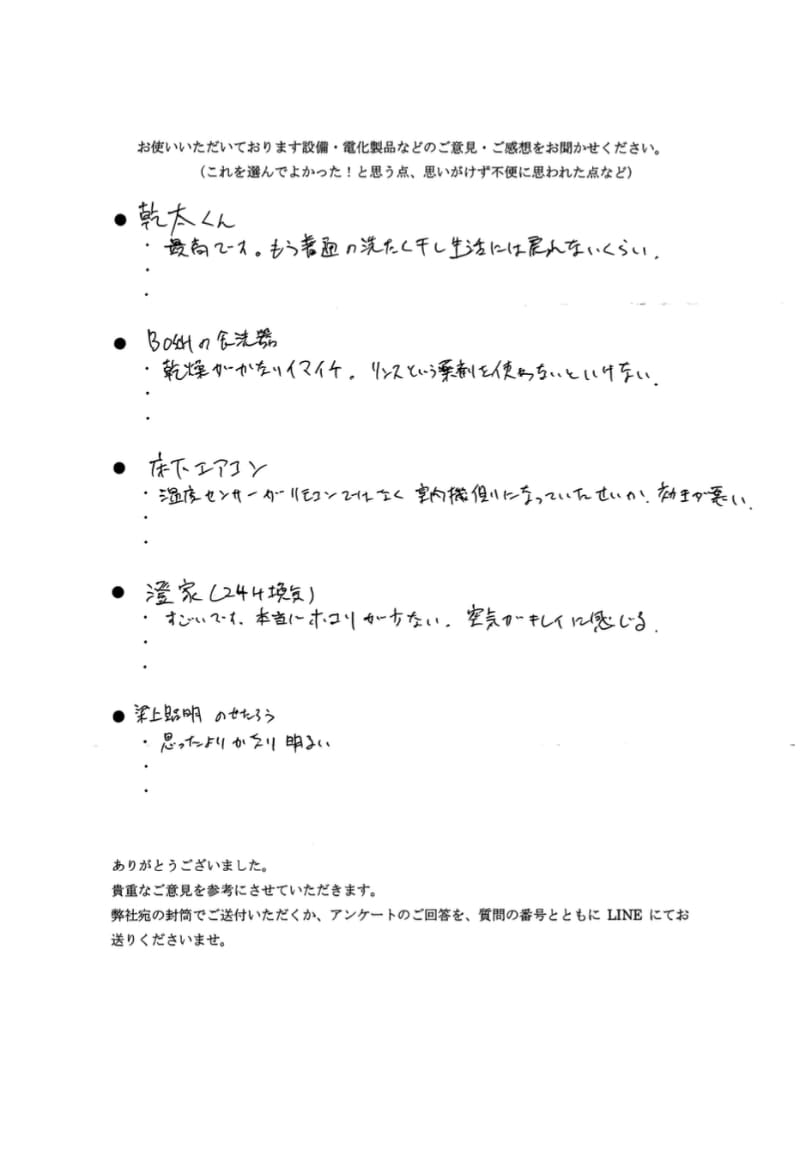 お使いいただいております設備・電化製品などのご意見・ご感想をお聞かせください。
（これを選んでよかった！と思う点、思いがけず不便に思われた点など）
● 乾太くん
・最高です。もう普通の洗たく干し生活には戻れないくらい.
・
・
● BOSHの食洗器
・乾燥がかなりイマイチ。リンスという薬剤を使わないといけない.
・
・
● 床下エアコン
・温度センサーがリモコンではなく室内機側になっていたせいか.効きが悪い.
・
・
● 澄家(24H換気)
・すごいです.本当にホコリが少ない.空気がキレイに感じる.
・
・
● 梁上照明 のせたろう
・思ったよりかなり明るい
・
・
ありがとうございました。
貴重なご意見を参考にさせていただきます。
弊社宛の封筒でご送付いただくか、アンケートのご回答を、質問の番号とともに LINE にてお
送りくださいませ。